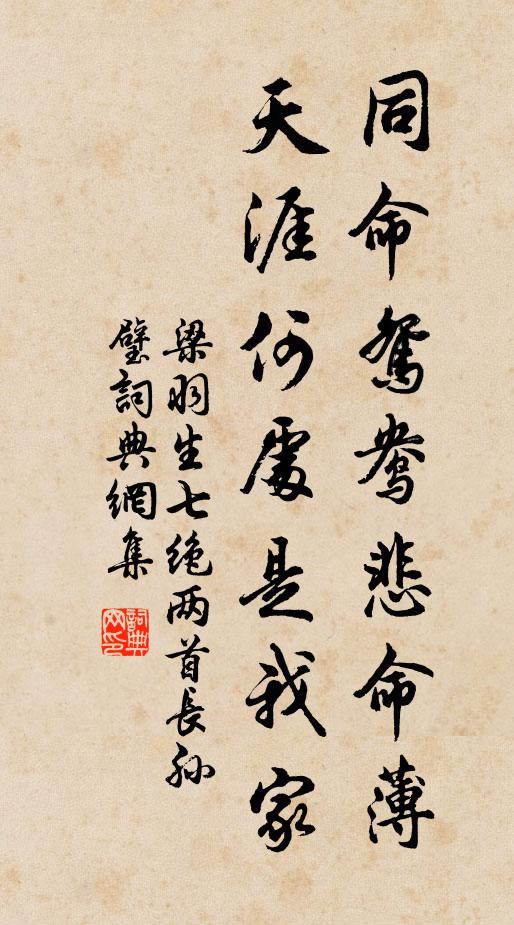 同命鴛鴦悲命薄
天涯何處是我家
梁羽生七绝两首長孫
璧詞典網集
詞典网印